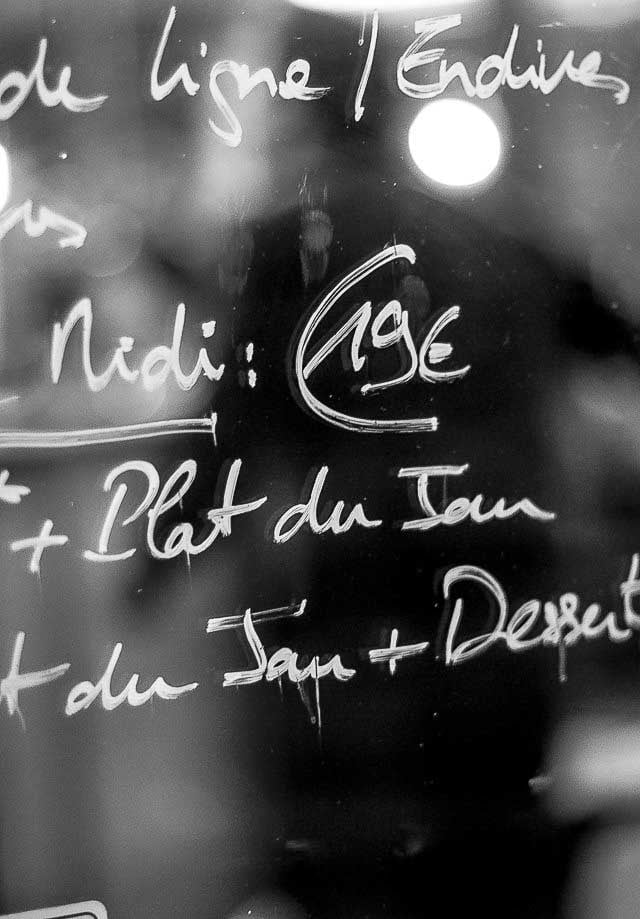 de ligne / Endives
Midi : (19€
+ Plat du Jour
t du Jour + Dessert